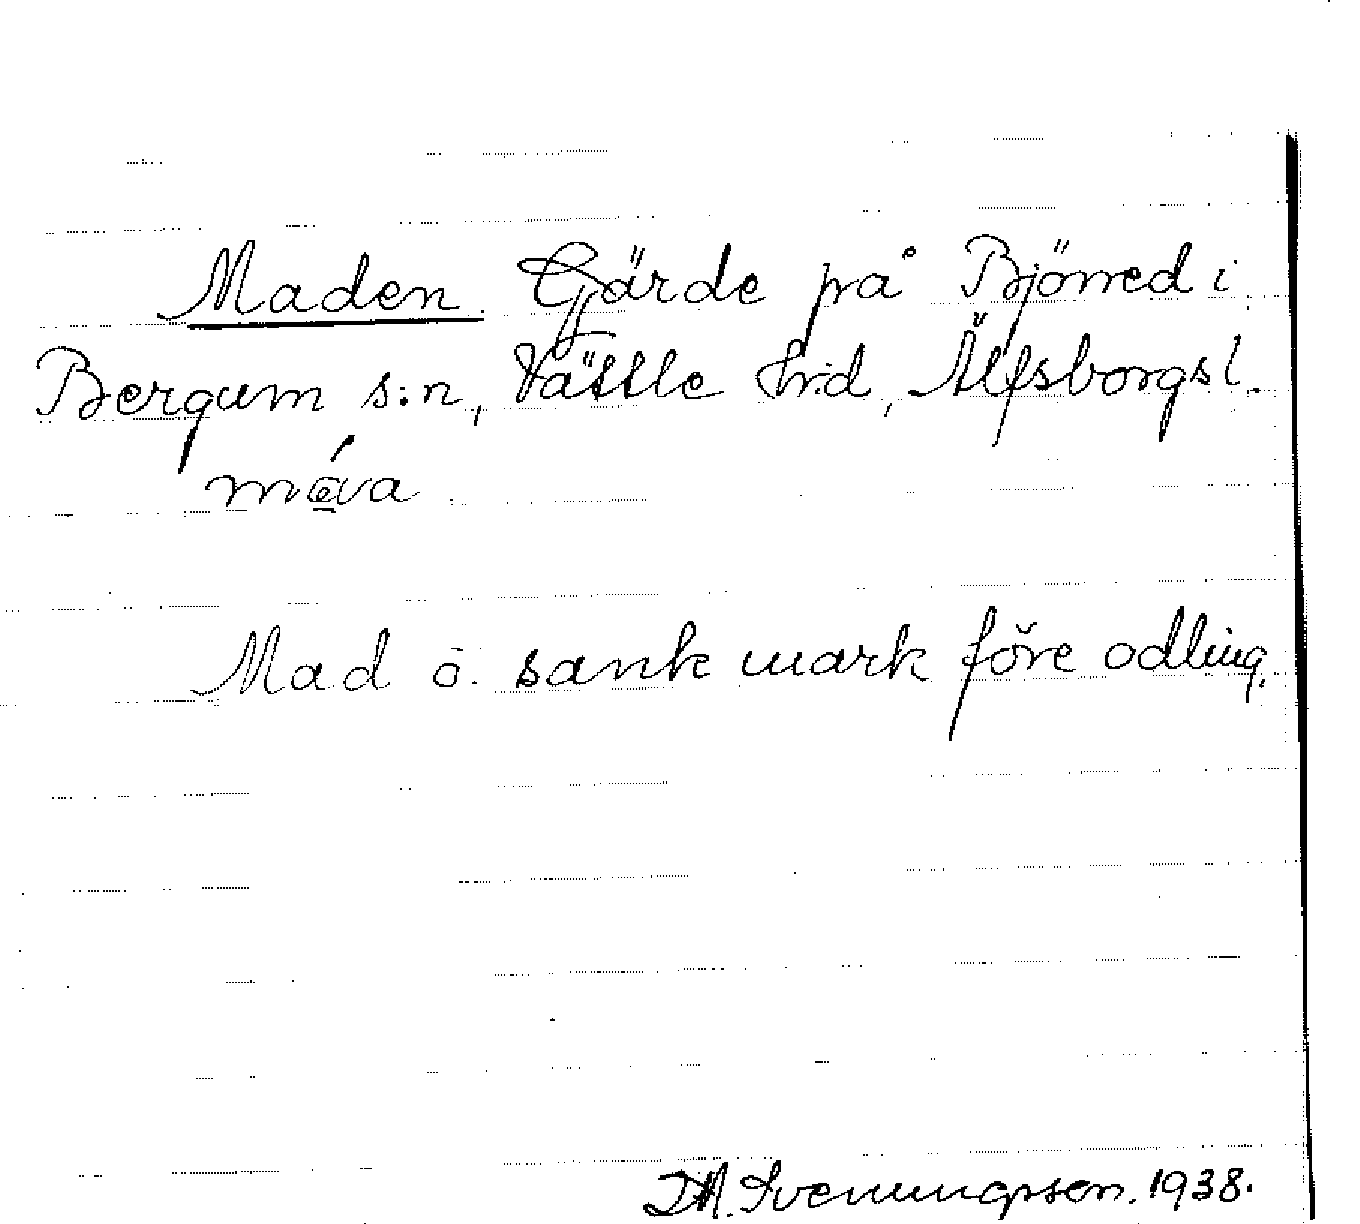 Maden. Gjärde på Björred i
Bergum s:n, Vättle hrd, Älfsborgsl.
Mad o. sank mark före odling.
D.A. Svenungsson. 1938.